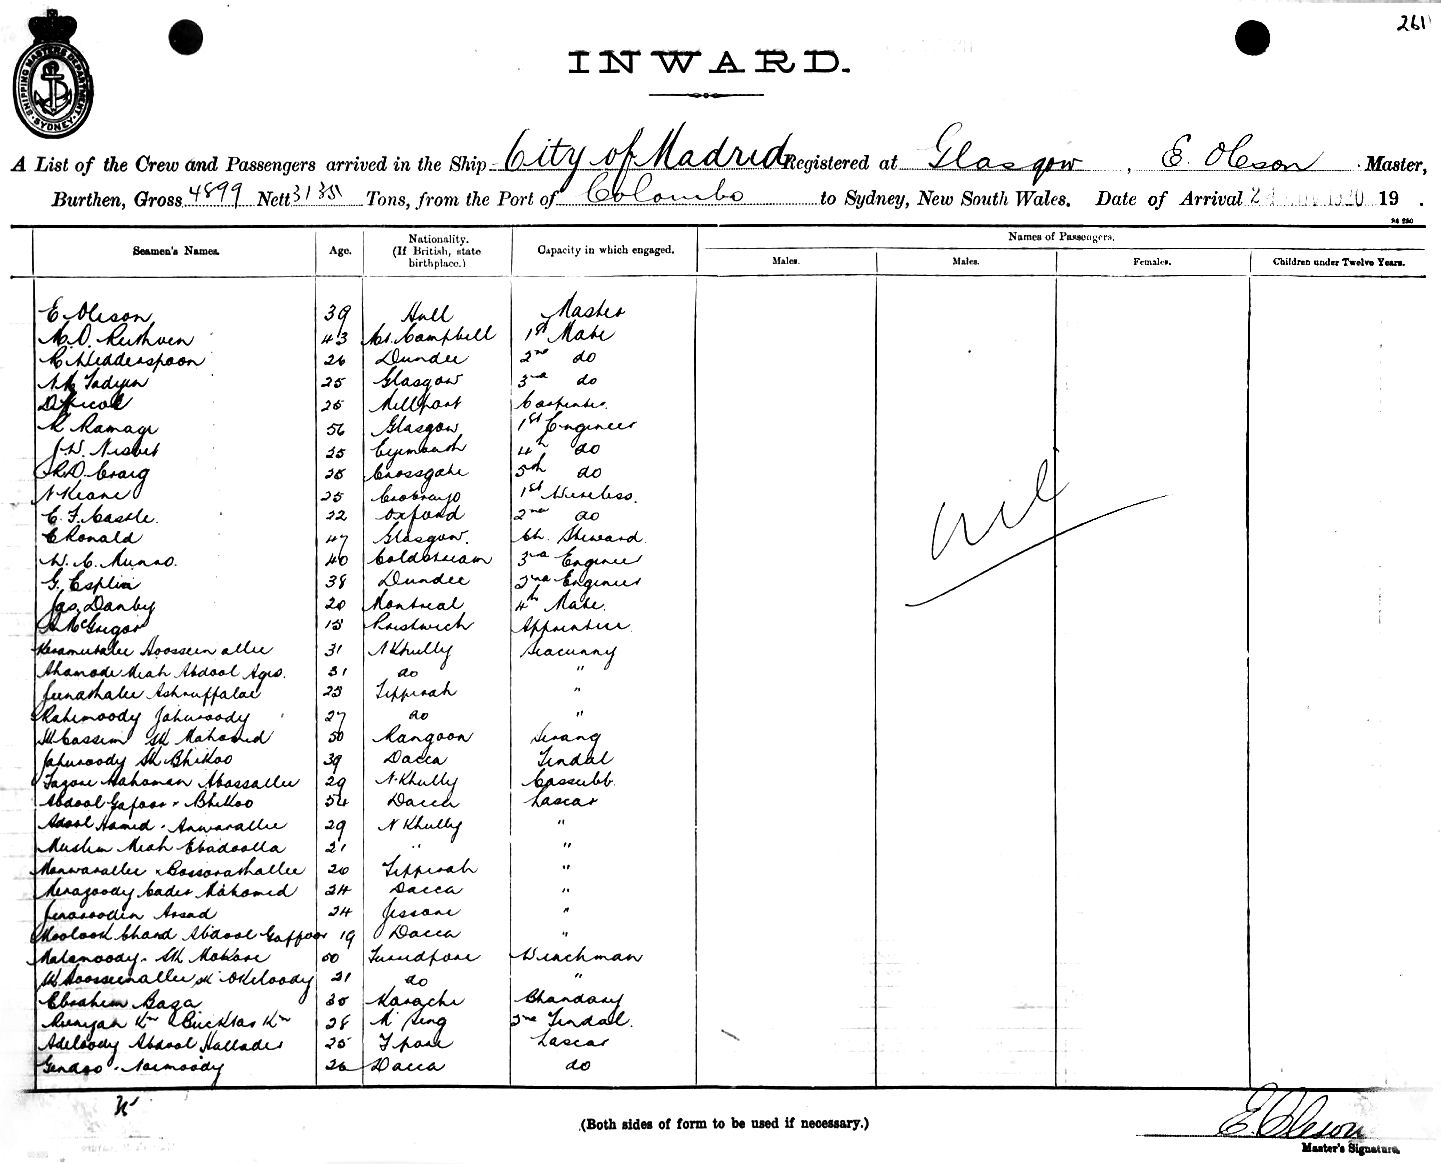 261
SHIPPING MASTERS DEPARTMENT SYDNEY
INWARD.
A List of the Crew and Passengers arrived in the Ship City of Madrid Registered at Glasgow, E. Oleson Master,
Burthen, Gross 4899 Nett 3135 Tons, from the Port of Colombo to Sydney, New South Wales. Date of Arrival 19 .
Seamen's Names. Age. Nationality. (If British, state birthplace.) Capacity in which engaged. Names of Passengers.
Males. Males. Females. Children under Twelve Years.
E Oleson 39 Hull Master
Ruthven 43 Campbell 1st Mate
R. Hedderspoon 26 Dundee 2nd do
25 Glasgow 3rd do
25 Millport Carpenter
R Ramage 56 Glasgow 1st Engineer
J. W. Nisbet 25 Eyemouth 4th do
R. D. Craig 25 Crossgate 5th do
N Keane 25 1st Wireless.
E. F. Castle. 22 Oxford 2nd do
C Ronald 47 Glasgow. Ch. Steward.
W. C. Munro. 40 Coldstream 3rd Engineer
G. Esplin 38 Dundee 2nd Engineer
Jas. Danby 20 Montreal 4th Mate.
A McGregor 15 Prestwich Apprentice
Keramutallee Hoosseinallee 31 N Khully Seacunny
Ahamode Miah Abdool 31 do "
Junathalee Ashruffalee 23 Tipperah "
Rahimoody Jahuroody 27 do "
Sk Cassim Sk Mahomed 50 Rangoon Serang
Jahuroody Sk Bhikoo 39 Dacca Tindal
Rahaman Abassallee 29 N. Khully Cassubb.
Abdool Gafoor - Bhikoo 54 Dacca Lascar
Abdool Hamid - Anwarallee 29 N Khully "
Muslim Miah Ebadoolla 21 " "
Monwarallee - Bassarathallee 20 Tipperah "
Merajoody Cader Mahomed 24 Dacca "
Assad 24 Jessore "
Moolook Chand Abdool Gaffoor 19 Dacca "
Malamoody - Sk 50 Furredpore Winchman
Sk Hoosseinallee Sk 21 do "
Ebrahim Baga 35 Karachi Bhandary
28 2nd Tindal.
Adeloody Abdool Halladar 25 F pore Lascar
26 Dacca do
nil
(Both sides of form to be used if necessary.)
E. Oleson
Master's Signature.